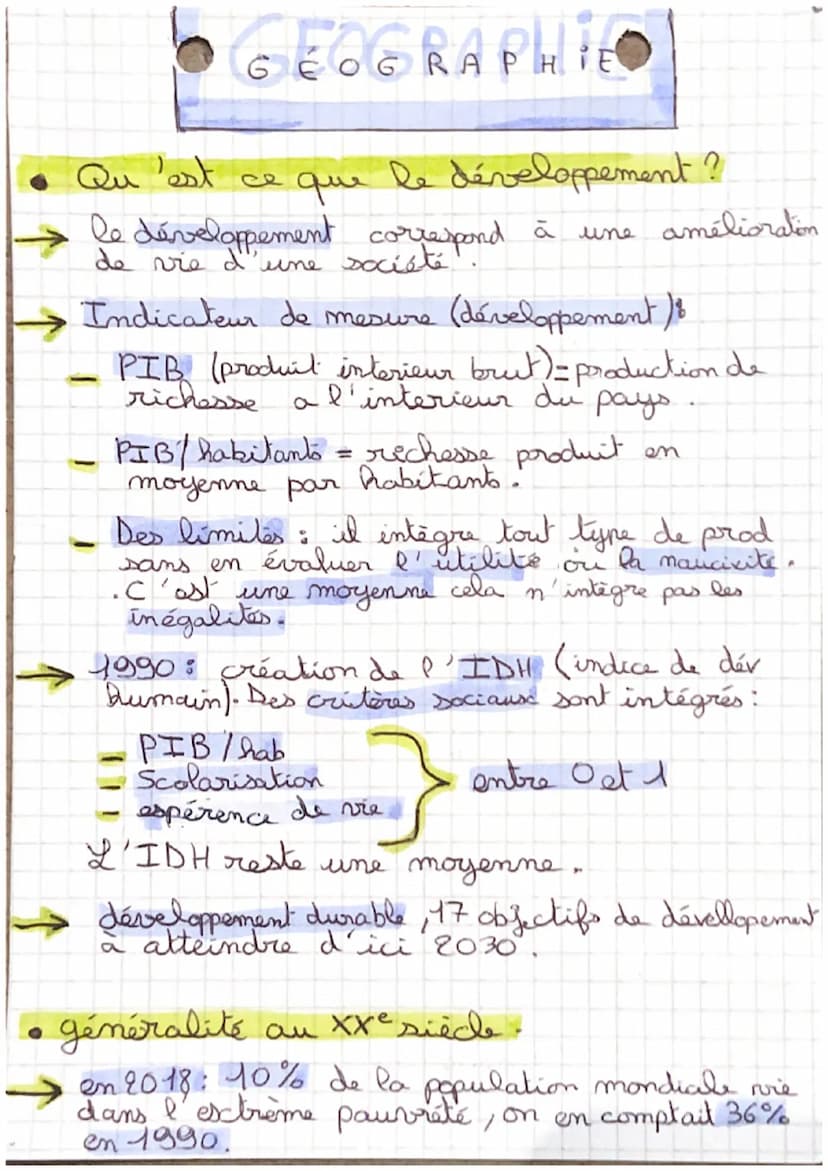 GÉOGRAPHIE
GÉOGRAPHiE
• Qu'est ce que le développement ?
→ le développement correspond à une amélioration
de vie d'une société.
→ Indicateur de mesure (développement):
- PIB (produit interieur brut)=production de
richesse a l'interieur du pays.
- PIB/habitants = richesse produit en
moyenne par habitants.
- Des limites : il intègre tout type de prod
sans en évaluer l'utilité ou la naucivité.
.C'est une moyenne cela n'intègre pas les
inégalités.
→ 1990 : création de l'IDH (indice de dév
humain). Des critères sociaux sont intégrés :
- PIB/hab
- Scolarisation
- espérence de vie
entre 0 et 1
L'IDH reste une moyenne.
→ développement durable, 17 objectifs de dévellopement
à atteindre d'ici 2030.
• généralité au XXe siècle.
→ en 2018 : 10% de la population mondiale vie
dans l'extrème pauvreté, on en comptait 36%
en 1990.